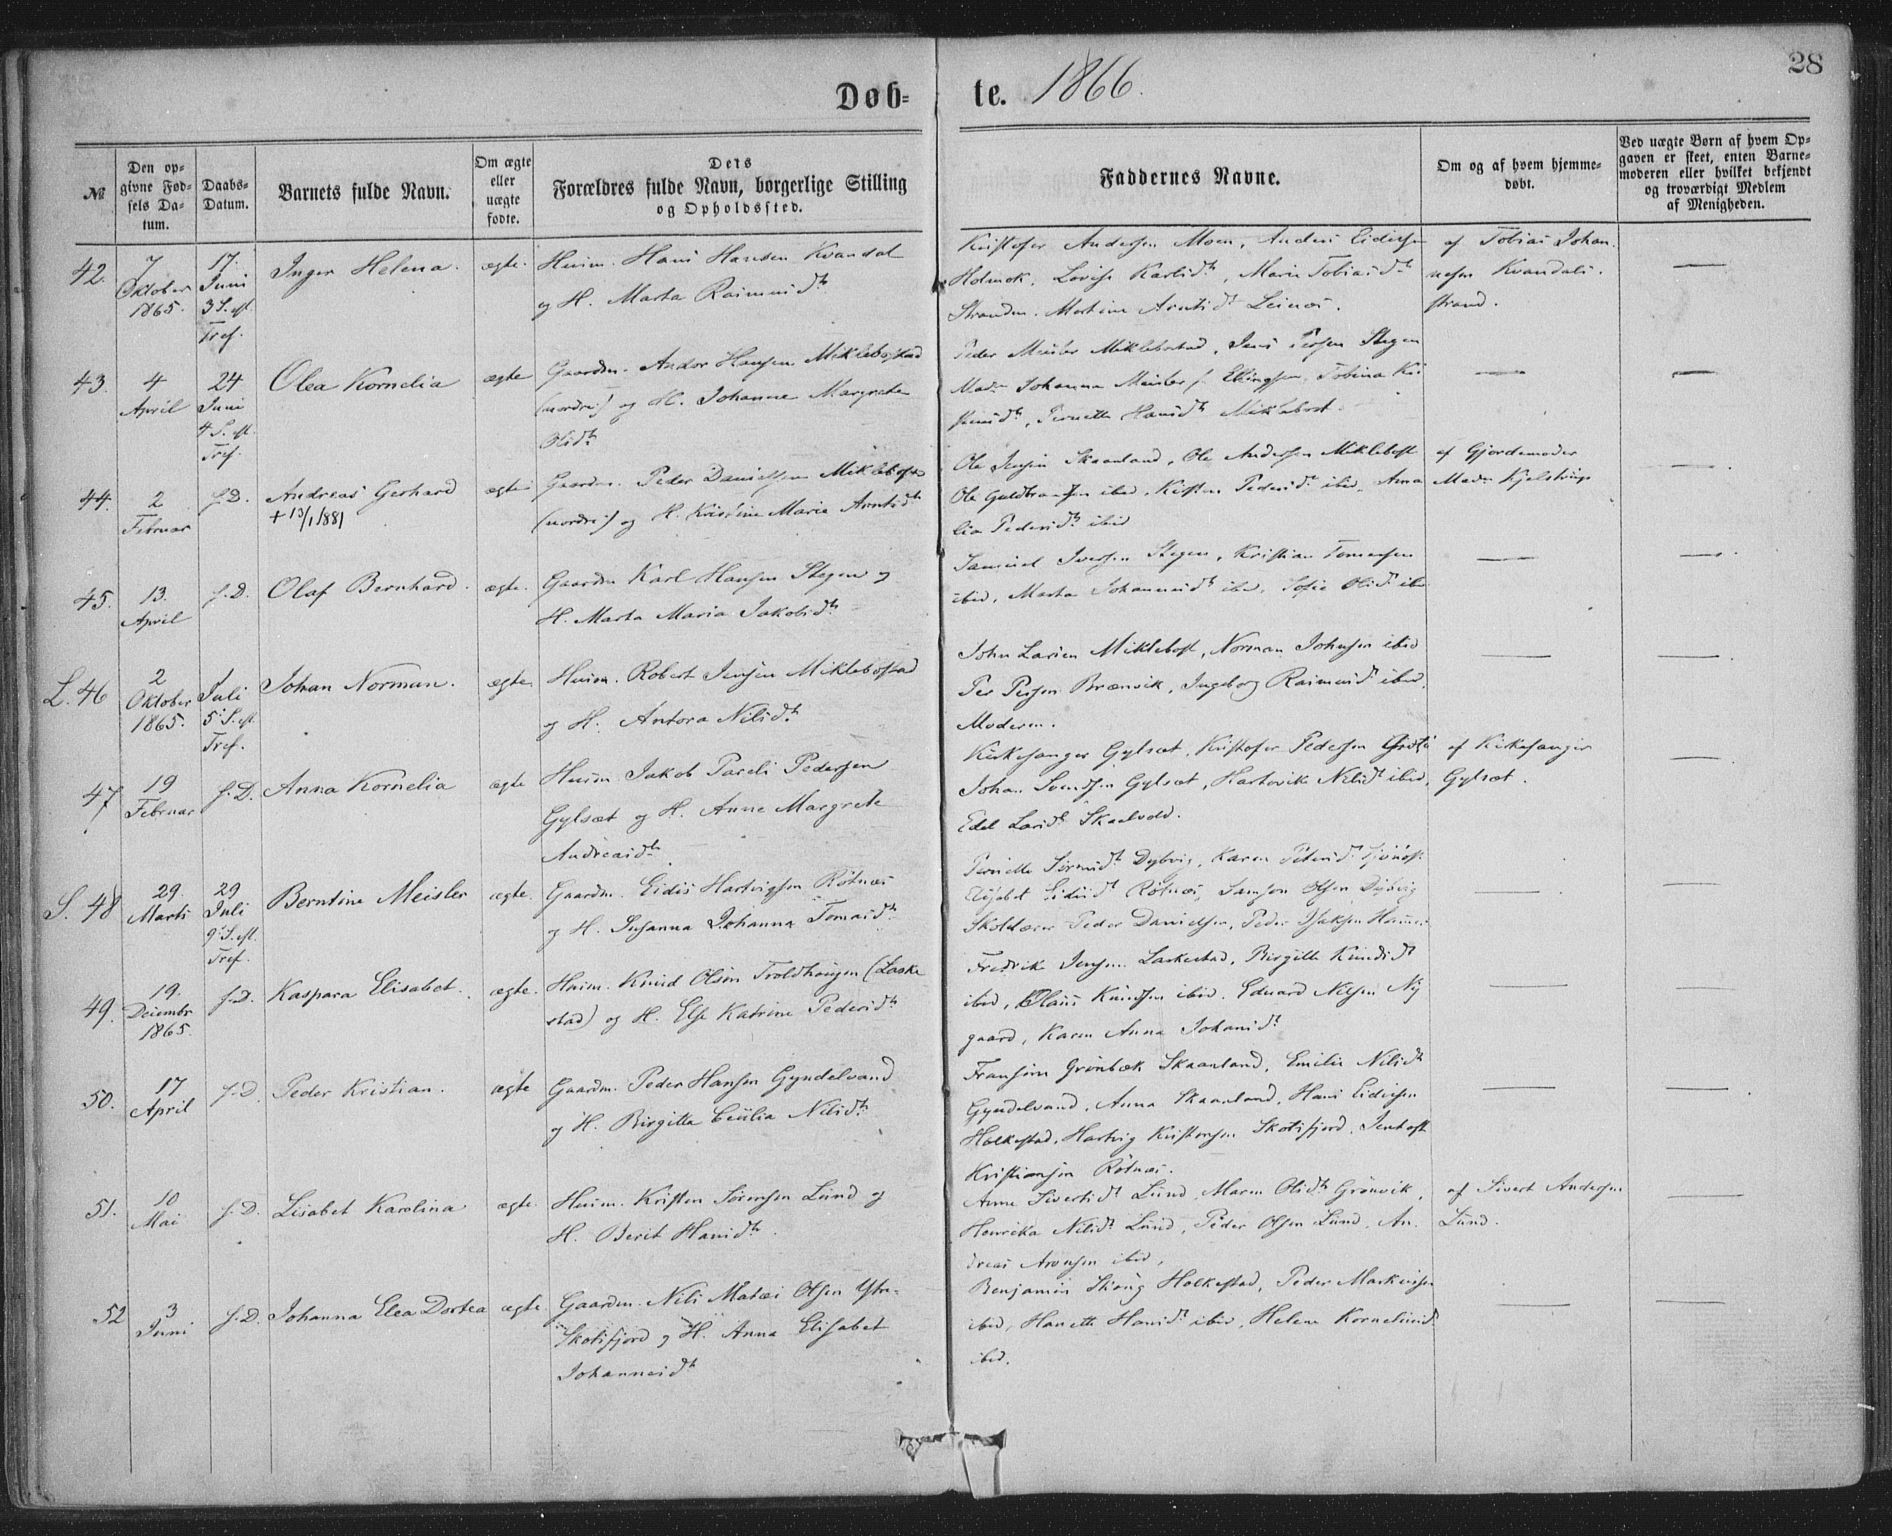 28
Døb=
te. 1866.
№
Den op=
givne Fød=
sels Da=
tum.
Daabs=
Datum.
Barnets fulde Navn.
Om ægte
eller
uægte
fødte.
Dets
Forældres fulde Navn, borgerlige Stilling
og Opholdssted.
Faddernes Navne.
Om og af hvem hjemme=
døbt.
Ved uægte Børn af hvem Op=
gaven er skeet, enten Barne=
moderen eller hvilket bekjendt
og troværdigt Medlem
af Menigheden.
42.
7
Oktober
1865.
17.
Juni
3 S. eft.
Tref.
Inger Helena.
ægte.
Husm. Hans Hansen Kvandal
og H. Marta Raimunsdt
Kristofer Andersen Moen, Anders Eidissen
Holmok, Lovise Karlsdt, Maria Tobiasdt
Stranden. Martine Arntsdt Leines.
af Tobias Johan
nesen Kvandals
strand.
43.
4
April
24
Juni
4 S. eft.
Tref.
Olea Kornelia
ægte
Gaardm. Andor Hansen Miklebostad
(nordre) og H. Johanne Margrete
Olsdt
Peder Meisler Miklebostad, Jens Persen Stegen
Mad. Johanna Meisler f. Ellingsen, Tobina
Pernette Hansdt Miklebost.
44.
2
Februar
s. D.
Andreas Gerhard
+ 13/1 1881
ægte
Gaardm. Peder Danielsen Miklebost
(nordre) og H. Kristine Marie Arntsdt
Ole Jensen Skaanland, Ole Andersen Miklebost
Ole Guldbransen ibid. Kirsten Pedersdt ibid. Ama
lia Pedersdt ibid
af Gjordemoder
Mad. Kjelstrup
45.
13.
April
s. D.
Olaf Bernhard.
ægte.
Gaardm Karl Hansen Stegen og
H. Marta Maria Jakobsdt
Samuel Iversen Stegen, Kristian Tomassen
ibid, Marta Johannesdt ibid, Sofie Olsdt ibid
L. 46
2
Oktober
1865.
Juli
5 S. eft.
Tref.
Johan Norman.
ægte
Husm. Robert Jensen Miklebostad
og H. Antora Nilsdt
John Larsen Miklebost, Norman Johnsen ibid
Per Persen Brænvik, Ingeborg Raimunsdt ibid,
Moderen.
47
19
Februar
s. D.
Anna Kornelia
ægte
Husm. Jakob Pareli Pedersen
Gylsæt og H. Anne Margrete
Andreasdt
Kirkesanger Gylsæt, Kristofer Pedersen
Johan Svendsen Gylsæt, Hartvika Nilsdt ibid,
Edel Larsdt Skaalvold.
af Kirkesanger
Gylsæt.
S. 48
29
Marts
29
Juli
9 S. eft.
Tref.
Berntine Meisler
ægte.
Gaardm. Eidis Hartvigsen Rötnes
og H. Susanna Johanna Tomasdt
Pernille Dybvig, Karen Petersdt
Elisabet Eidisdt Rötnes, Samson Olsen Dybvig
Skolelærer Peder Danielsen, Peder Isaksen
49.
19.
Decembr
1865.
s. D.
Kaspara Elisabet.
ægte.
Husm. Knud Olsen Troldhaugen (Laske
stad) og H. Else Katrine Pedersdt
Fredrik Jensen Laskestad, Birgitte Knudsdt
ibid, Claus Knudsen ibid. Eduard Nilsen Ny
gaard, Karen Anna Johansdt
50.
17
April
s. D.
Peder Kristian.
ægte
Gaardm. Peder Hansen Gyndelvand
og H. Birgitta Cecilia Nilsdt
Grönbæk Skaanland, Emilie Nilsdt
Gyndelvand, Anna Skaanland, Hans Eidissen
Holkestad, Hartvig Kristensen Skotsfjord,
Kristiansen Rötnes.
51.
10
Mai
s. D.
Lisabet Karolina
ægte.
Husm. Kristen Sörensen Lund og
H. Berit Hansdt.
Anne Sivertsdt Lund, Maren Olsdt Grönvik,
Henrika Nilsdt Lund, Peder Olsen Lund, An
dreas Aronsen ibid,
af Sivert Andersen
Lund.
52
3
Juni
s. D.
Johanna Elea Dortea
ægte
Gaardm. Nils Matæi Olsen Ytre
Skotsfjord og H. Anna Elisabet
Johannesdt
Benjamin Skong Holkestad, Peder Markussen
ibid, Hanette Hansdt ibid, Helene Korneliusdt
ibid.